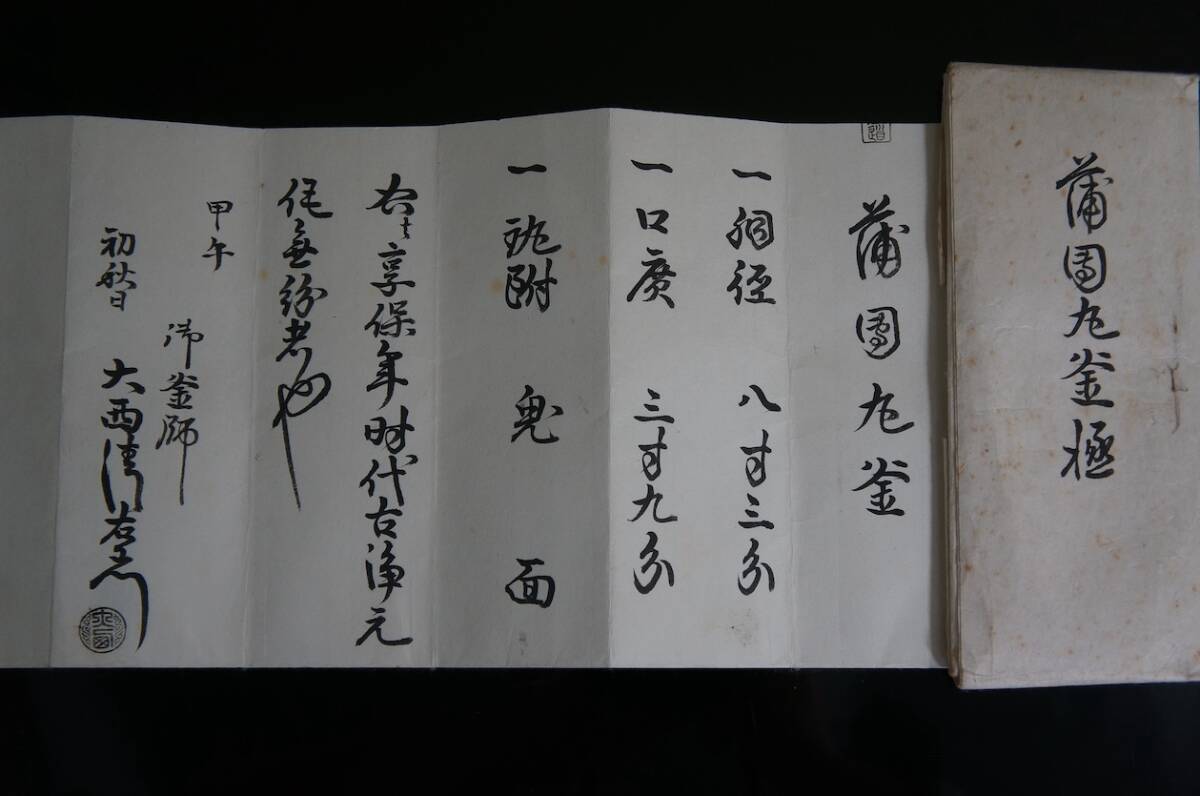 蒲團丸釜極
蒲團丸釜
一胴径 八寸三分
一口廣 三寸九分
一鐶附 鬼面
右者享保年时代古浄元
作無紛者也
甲午
初秋日
御釜師
大西清右衛門